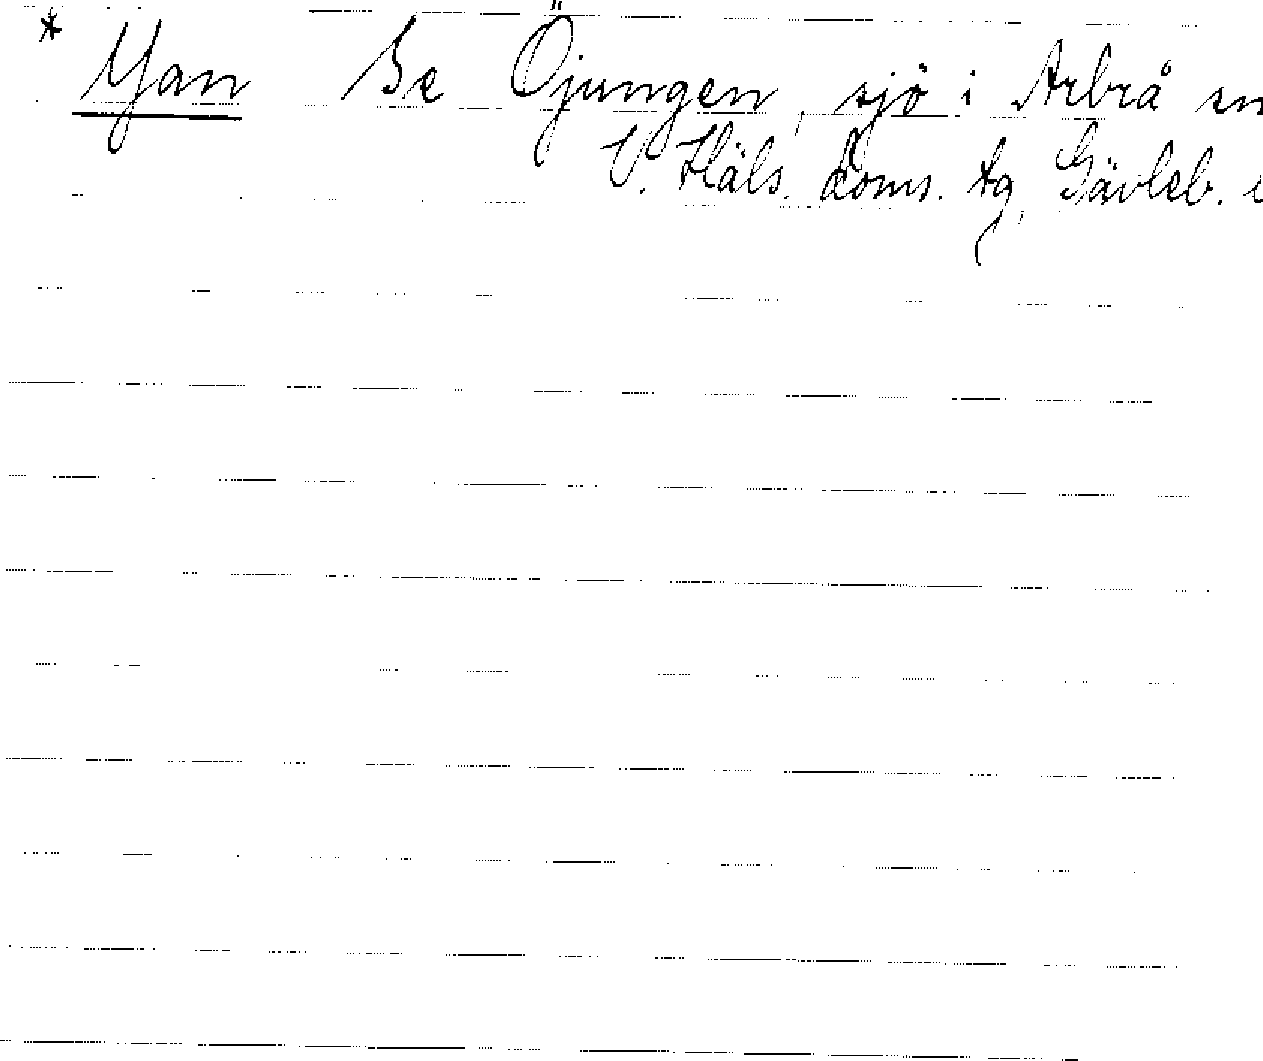 * Yan Se Öjungen, sjö i Arbrå sn
V. Häls. doms. tg, Gävleb.